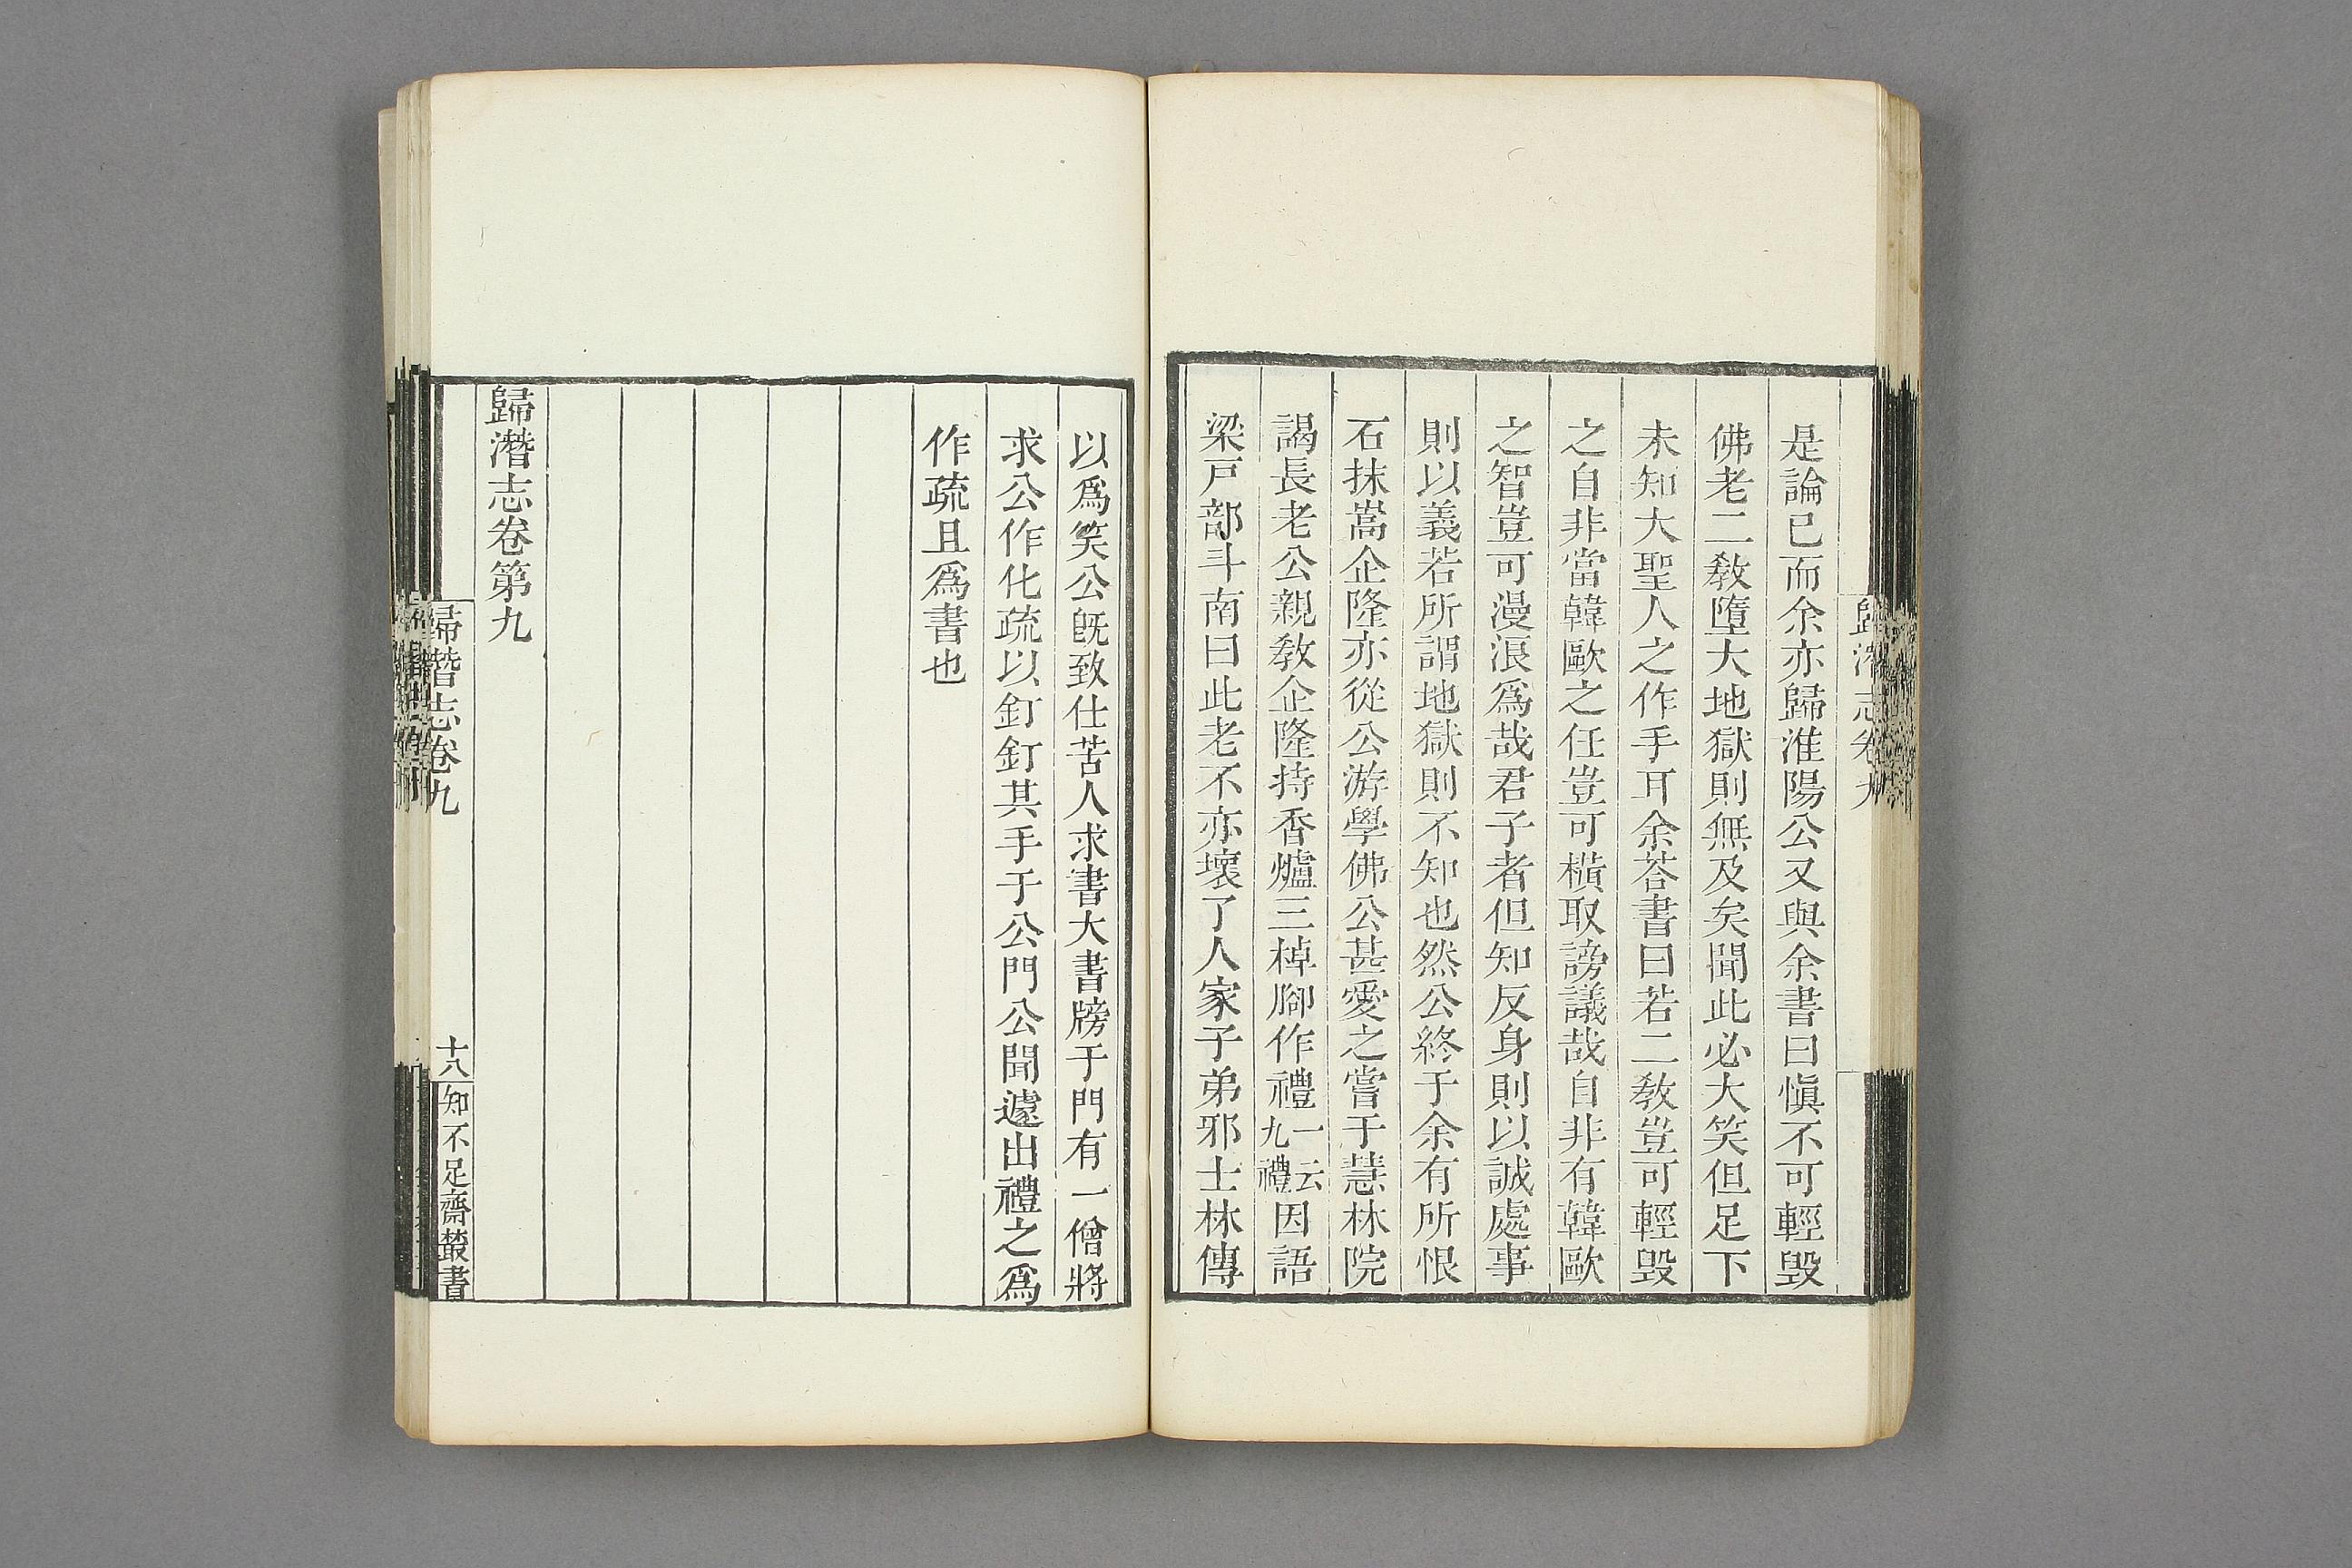 是論已而余亦歸淮陽公又與余書曰愼不可輕毀
佛老二敎墮大地獄則無及矣聞此必大笑但足下
未知大聖人之作手耳余荅書曰若二敎豈可輕毀
之自非當韓歐之任豈可橫取謗議哉自非有韓歐
之智豈可漫浪爲哉君子者但知反身則以誠處事
則以義若所謂地獄則不知也然公終于余有所恨
石抹嵩企隆亦從公游學佛公甚愛之嘗于慧林院
謁長老公親敎企隆持香爐三棹腳作禮一云九禮因語
梁戸部斗南曰此老不亦壞了人家子弟邪士林傳
以爲笑公旣致仕苦人求書大書牓于門有一僧將
求公作化疏以釘釘其手于公門公聞遽出禮之爲
作疏且爲書也
歸潛志卷第九
歸潛志卷九
十八
知不足齋叢書